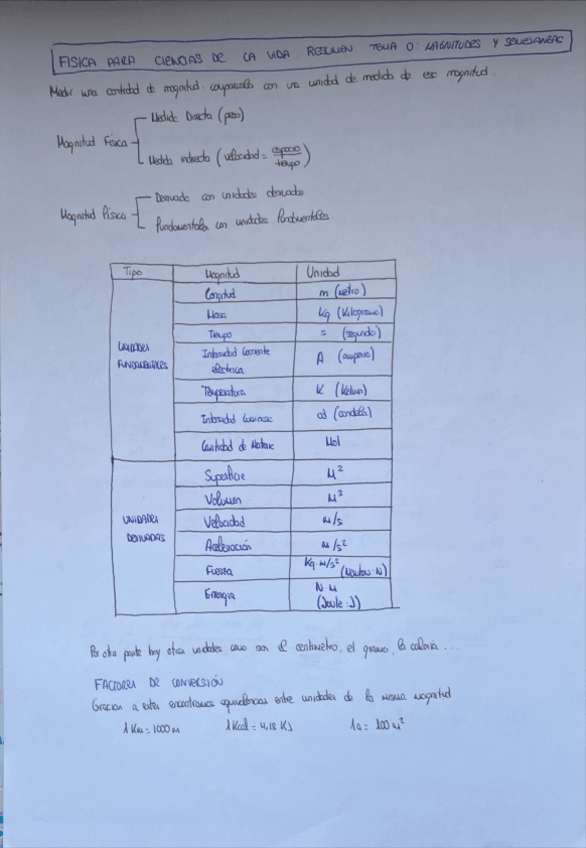 FISICA PARA CIENCIAS DE LA VIDA. RESUMEN TEMA 0: MAGNITUDES Y SEMEJANZAS
Medir una cantidad de magnitud: compararla con una unidad de medida de esa magnitud.
Magnitud Física
Medida Directa (peso)
Medida indirecta (velocidad = espacio/tiempo)
Magnitud física
Derivada con unidades derivadas
Fundamentales con unidades fundamentales.
Tipo Magnitud Unidad
UNIDADES FUNDAMENTALES
Longitud m (metro)
Masa Kg (Kilogramo)
Tiempo s (segundo)
Intensidad Corriente eléctrica A (amperio)
Temperatura K (Kelvin)
Intensidad Luminosa cd (candela)
Cantidad de Materia Mol
UNIDADES DERIVADAS
Superficie M²
Volumen M³
Velocidad m/s
Aceleración m/s²
Fuerza Kg·M/s² (Newton: N)
Energia N·M (Joule: J)
Por otra parte hay otras unidades como son el centímetro, el gramo, la caloría ...
FACTORES DE CONVERSIÓN
Gracias a estos encontramos equivalencias entre unidades de la misma magnitud
1 Km = 1000 m 1 Kcal = 4,18 KJ 1a = 100 m²